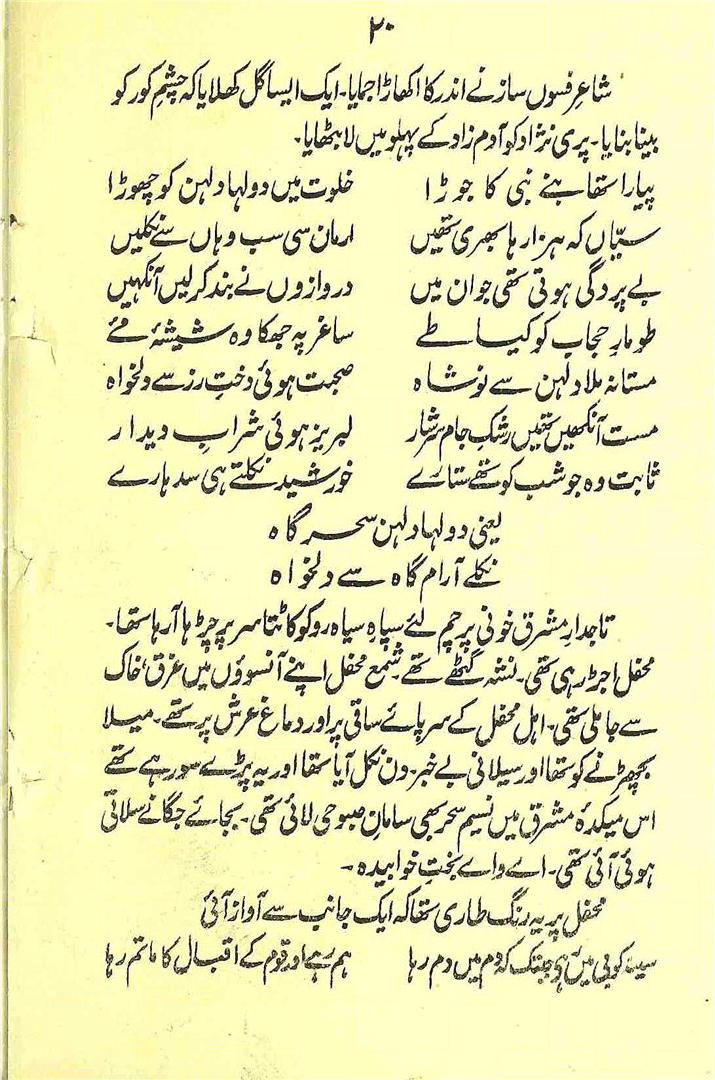 ۲۰
شاعرِ فسوں ساز نے اندر کا اکھاڑا جمایا۔ ایک ایسا گل کھلایا کہ چشمِ کور کو
بینا بنایا۔ پری نژاد کو آدم زاد کے پہلو میں لا بٹھایا۔
پیارا تھا بنے نبی کا جوڑا خلوت میں دولہا دلہن کو چھوڑا
سیّاں کہ ہزار ہا بھری تھیں ارمان سی سب وہاں سے نکلیں
بے پردگی ہوتی تھی جوان میں دروازوں نے بند کر لیں آنکھیں
طومارِ حجاب کو کیا طے ساغر پہ جھکا وہ شیشۂ مئے
مستانہ ملا دلہن سے نوشاہ صحبت ہوئی دختِ رز سے دلخواہ
مست آنکھیں تھیں رشکِ جام سرشار لبریز ہوئی شرابِ دیدار
ثابت وہ جو شب کو تھے ستارے خورشید نکلتے ہی سدہارے
یعنی دولہا دلہن سحر گاہ
نکلے آرام گاہ سے دلخواہ
تاجدارِ مشرق خونی پرچم لئے سپاہِ سیاہ رو کو کاٹتا سر پر چڑہا آرہا تھا۔
محفل اجڑ رہی تھی۔ نشہ گنٹھے تھے۔ شمع محفل اپنے آنسوؤں میں غرق، خاک
سے جا ملی تھی۔ اہل محفل کے سر پائے ساقی پر اور دماغ عرش پر تھے۔ میلا
بچھڑنے کو تھا اور سیلانی بے خبر۔ دن نکل آیا تھا اور یہ پڑے سو رہے تھے
اس میکدۂ مشرق میں نسیم سحر بھی سامانِ صبوحی لائی تھی۔ بجائے جگانے سلاتی
ہوئی آئی تھی۔ اے واے بختِ خوابیدہ۔
محفل پر یہ رنگ طاری تھا کہ ایک جانب سے آواز آئی
سینہ کوبی میں رہے جبتک کہ دم میں دم رہا ہم رہے اور قوم کے اقبال کا ماتم رہا